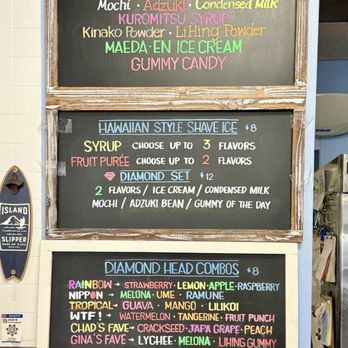 Mochi · Adzuki · Condensed Milk
KUROMITSU SYRUP
Kinako Powder · Li Hing Powder
MAEDA-EN ICE CREAM
GUMMY CANDY
HAWAIIAN STYLE SHAVE ICE $8
SYRUP CHOOSE UP TO 3 FLAVORS
FRUIT PURÉE CHOOSE UP TO 2 FLAVORS
DIAMOND SET $12
2 FLAVORS / ICE CREAM / CONDENSED MILK
MOCHI / ADZUKI BEAN / GUMMY OF THE DAY
ISLAND
SLIPPER
DIAMOND HEAD COMBOS $8
RAINBOW → STRAWBERRY · LEMON · APPLE · RASPBERRY
NIPPON → MELONA · UME · RAMUNE
TROPICAL → GUAVA · MANGO · LILIKOI
WTF! → WATERMELON · TANGERINE · FRUIT PUNCH
CHAD'S FAVE → CRACKSEED · JAPA GRAPE · PEACH
GINA'S FAVE → LYCHEE · MELONA · LI HING GUMMY